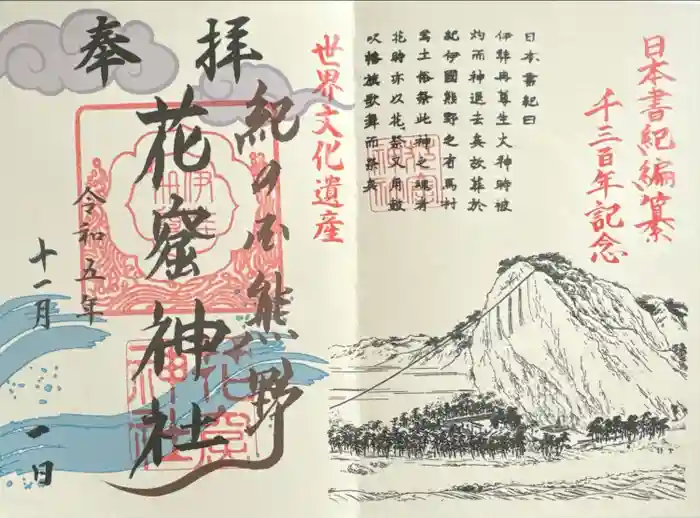 日本書紀編纂
千三百年記念
日本書紀曰
伊弉冉尊生火神時被
灼而神退去矣故葬於
紀伊國熊野之有馬村
焉土俗祭此神之魂者
花時亦以花祭又用鼓
吹幡旗歌舞而祭矣
世界文化遺産
奉拝
紀の国熊野
花窟神社
令和五年
十一月
一日
花窟
神社